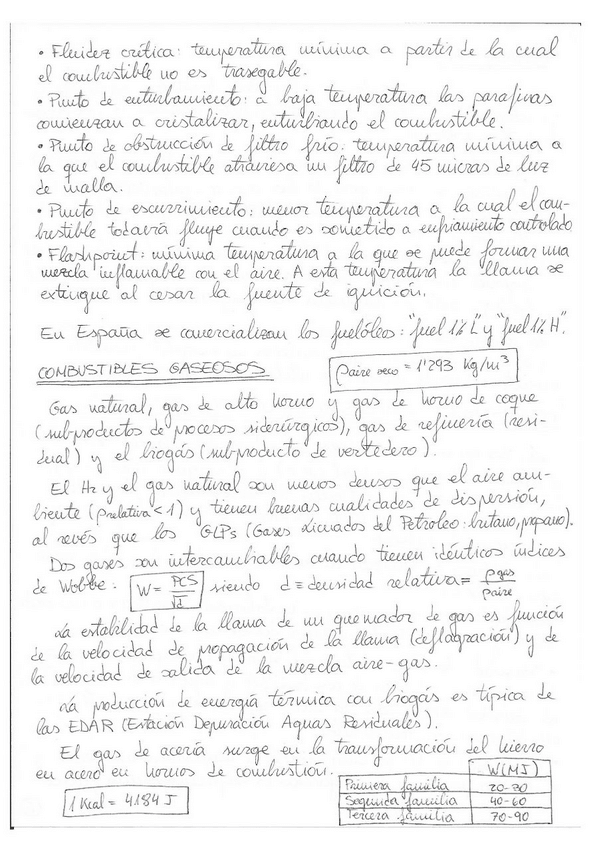 • Fluidez crítica: temperatura mínima a partir de la cual
el combustible no es trasegable.
• Punto de enturbamiento: a baja temperatura las parafinas
comienzan a cristalizar, enturbiando el combustible.
• Punto de obstrucción de filtro frío: temperatura mínima a
la que el combustible atraviesa un filtro de 45 micras de luz
de malla.
• Punto de escurrimiento: menor temperatura a la cual el com-
bustible todavía fluye cuando es sometido a enfriamiento controlado
• Flashpoint: mínima temperatura a la que se puede formar una
mezcla inflamable con el aire. A esta temperatura la llama se
extingue al cesar la fuente de ignición.
En España se comercializan los fuelóleos: "fuel 1% L" y "fuel 1% H".
COMBUSTIBLES GASEOSOS
ρaire seco = 1'293 Kg/m³
Gas natural, gas de alto horno y gas de horno de coque
(sub-productos de procesos siderúrgicos), gas de refinería (resi-
dual) y el biogás (sub-producto de vertedero).
El H2 y el gas natural son menos densos que el aire am-
biente (ρrelativa < 1) y tienen buenas cualidades de dispersión,
al revés que los GLPs (Gases Licuados del Petroleo: butano, propano).
Dos gases son intercambiables cuando tienen idénticos índices
de Wobbe: W = PCS/√d siendo d ≡ densidad relativa = ρgas/ρaire
La estabilidad de la llama de un quemador de gas es función
de la velocidad de propagación de la llama (deflagración) y de
la velocidad de salida de la mezcla aire-gas.
La producción de energía térmica con biogás es típica de
las EDAR (Estación Depuración Aguas Residuales).
El gas de acería surge en la transformación del hierro
en acero en hornos de combustión.
1 Kcal = 4184 J
W(MJ)
Primera familia 20-30
Segunda familia 40-60
Tercera familia 70-90